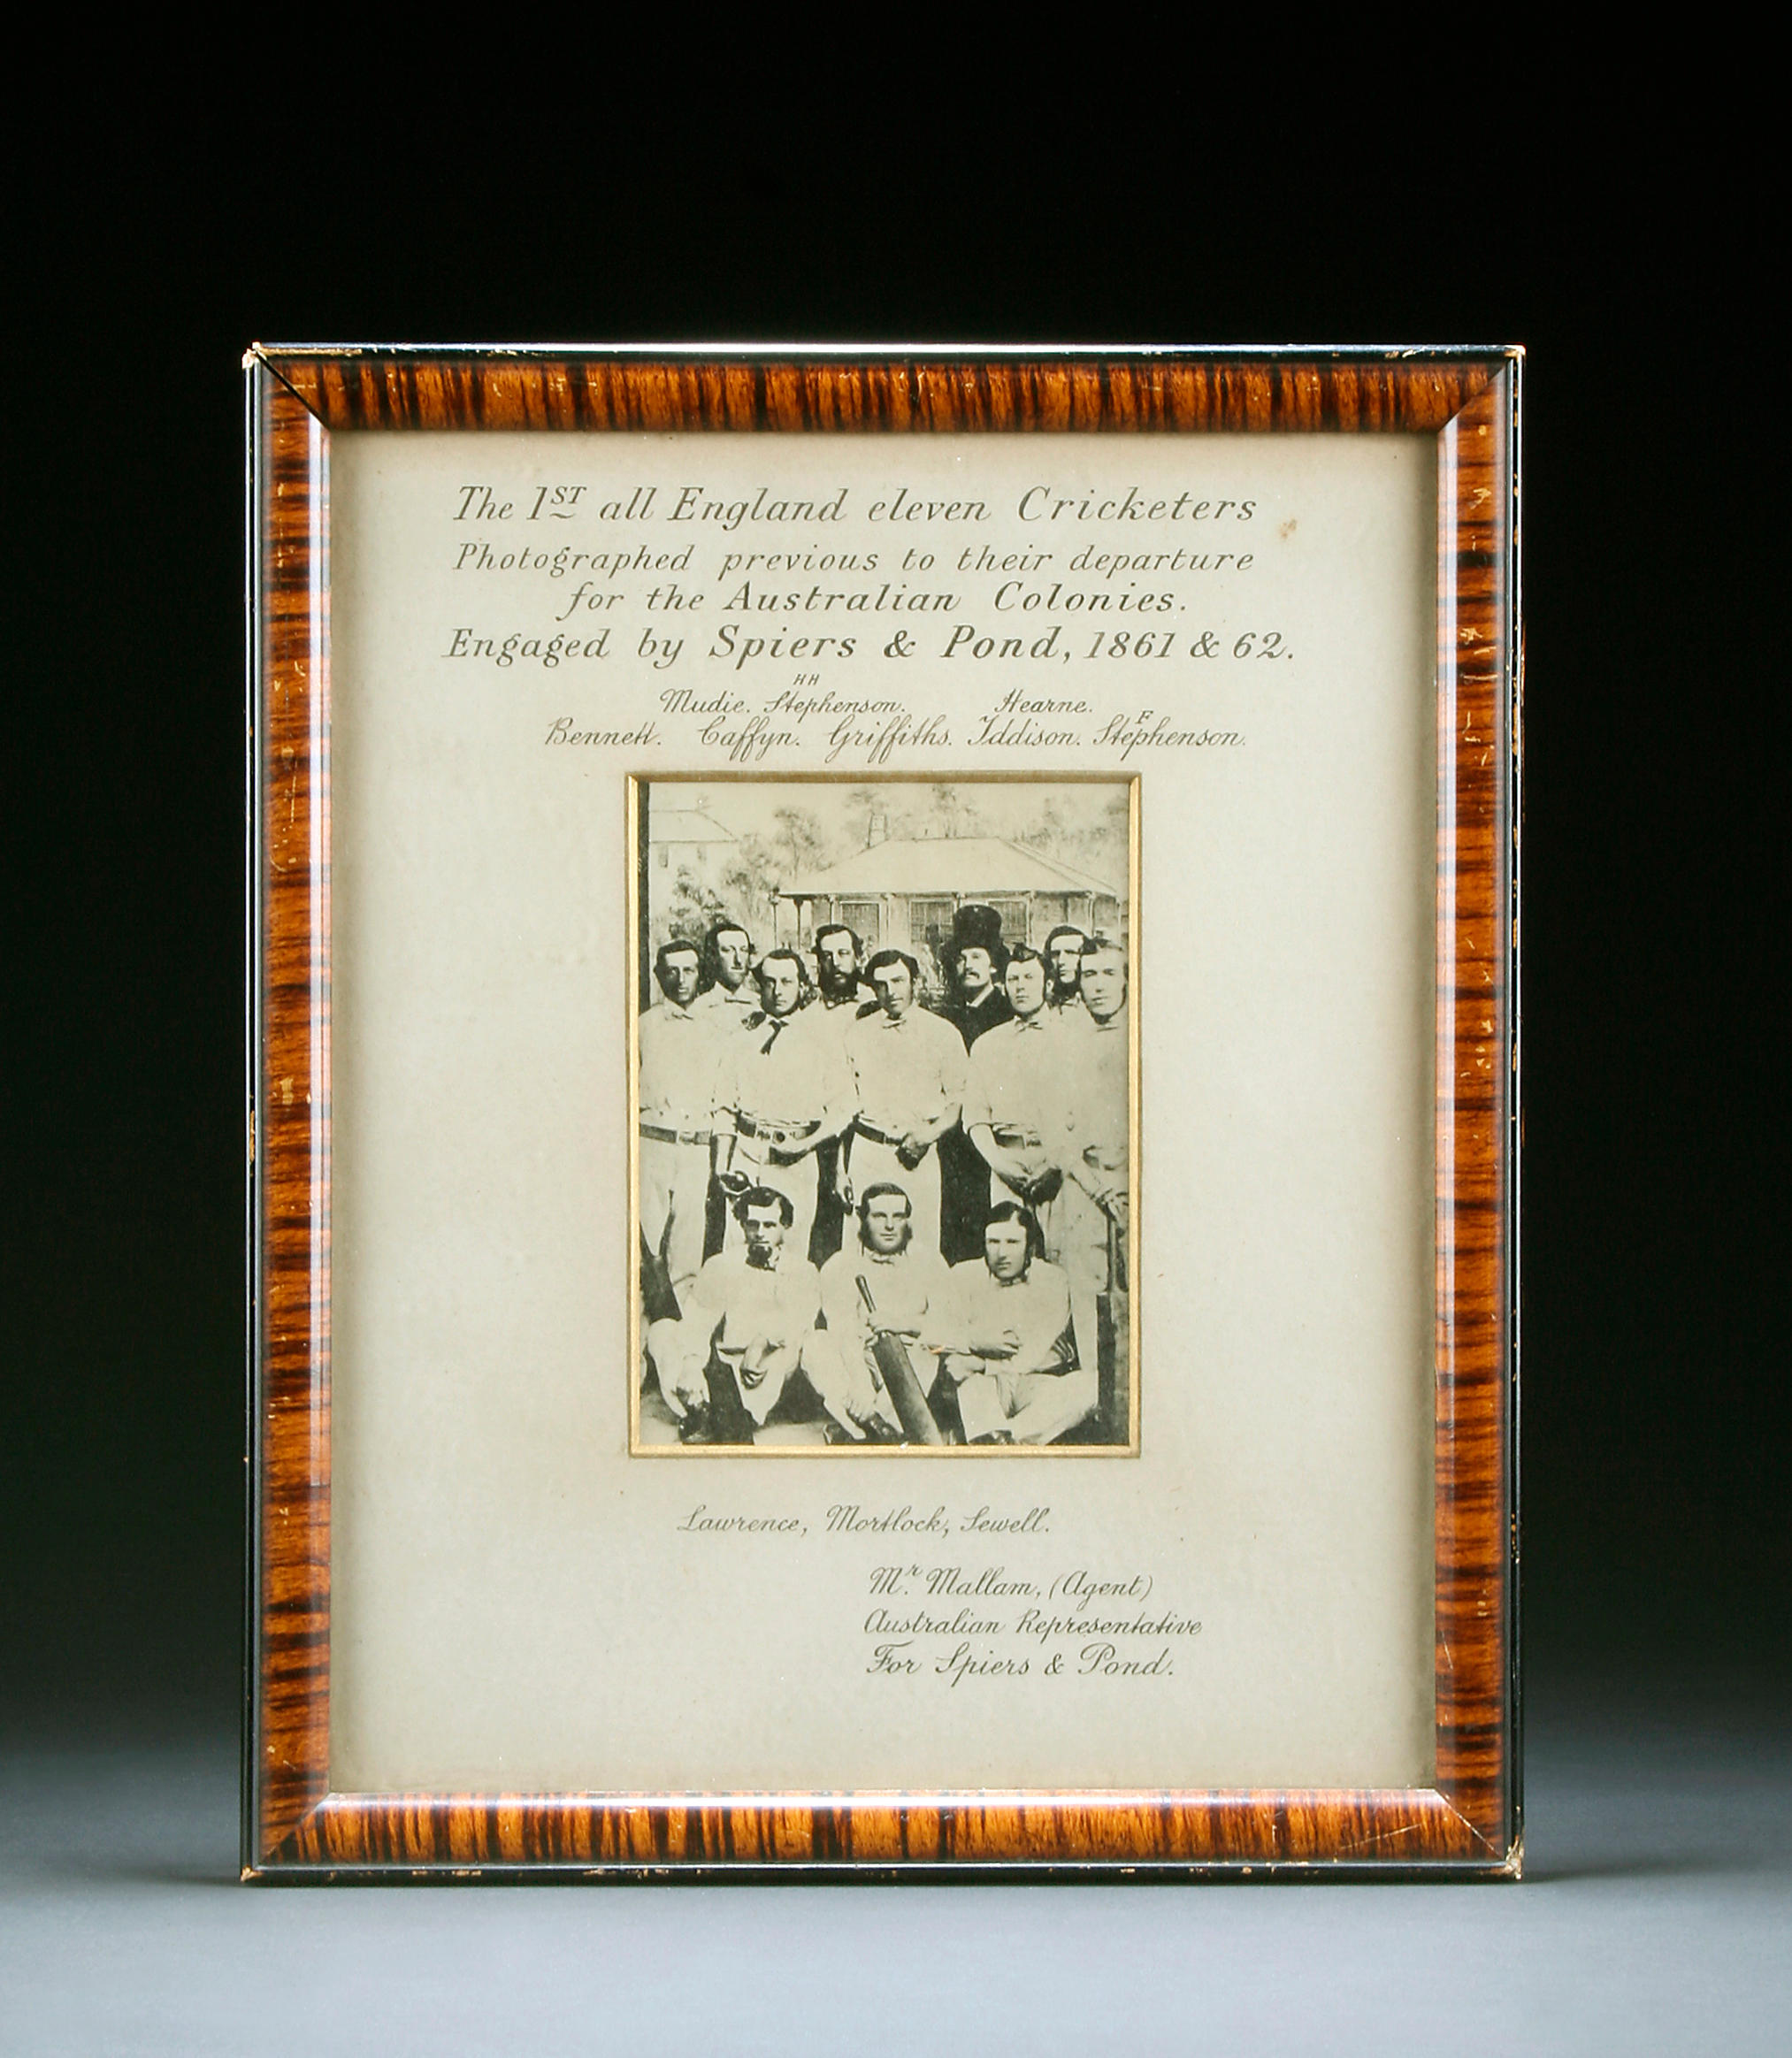 The 1ST all England eleven Cricketers
Photographed previous to their departure
for the Australian Colonies.
Engaged by Spiers & Pond, 1861 & 62.
Mudie. HH Stephenson. Hearne.
Bennett. Caffyn. Griffiths. Iddison. F Stephenson.
Lawrence, Mortlock, Sewell.
Mr. Mallam, (Agent)
Australian Representative
For Spiers & Pond.